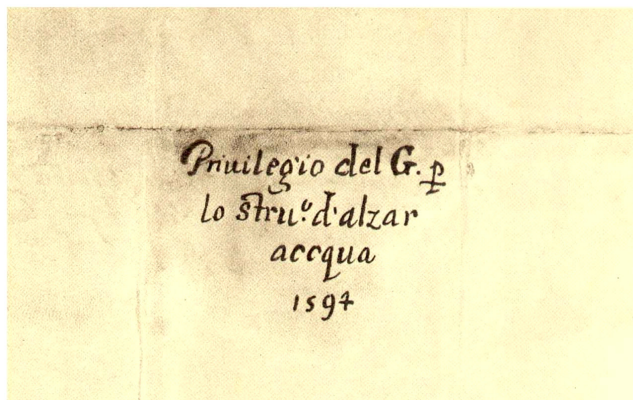 Priuilegio del G. ꝑ
lo stru.º d'alzar
accqua
1594